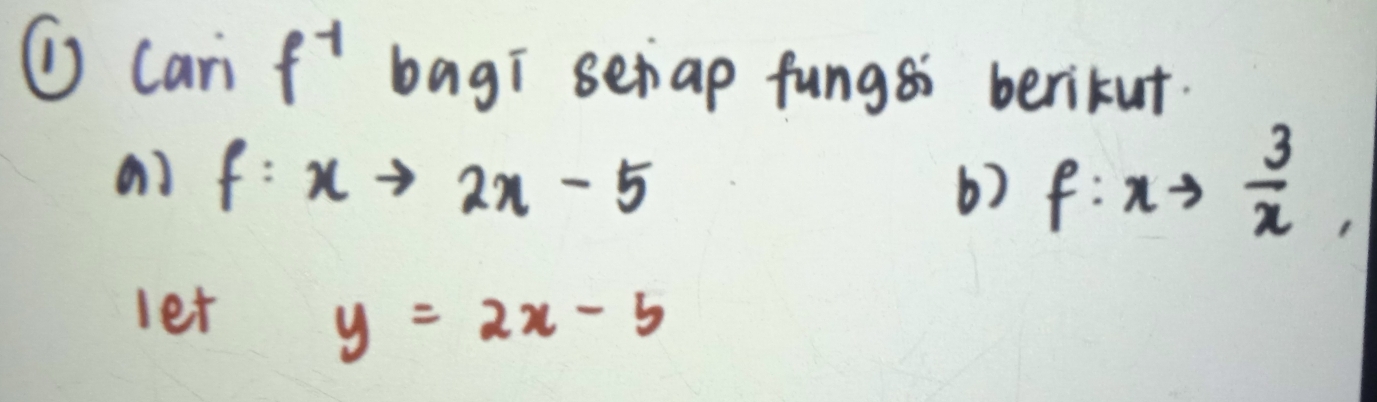 ① Cari f⁻¹ bagi setiap fungsi berikut.
a) f : x → 2x - 5 b) f : x → 3/x ,
let y = 2x - 5